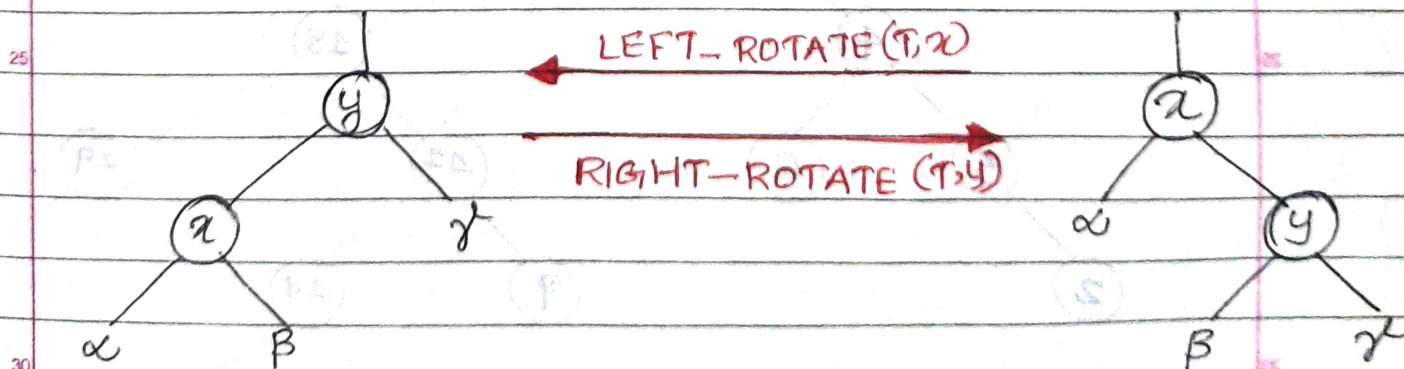 25
LEFT-ROTATE(T,x)
y
x
RIGHT-ROTATE (T,y)
γ
α
x
y
α
β
β
γ
30